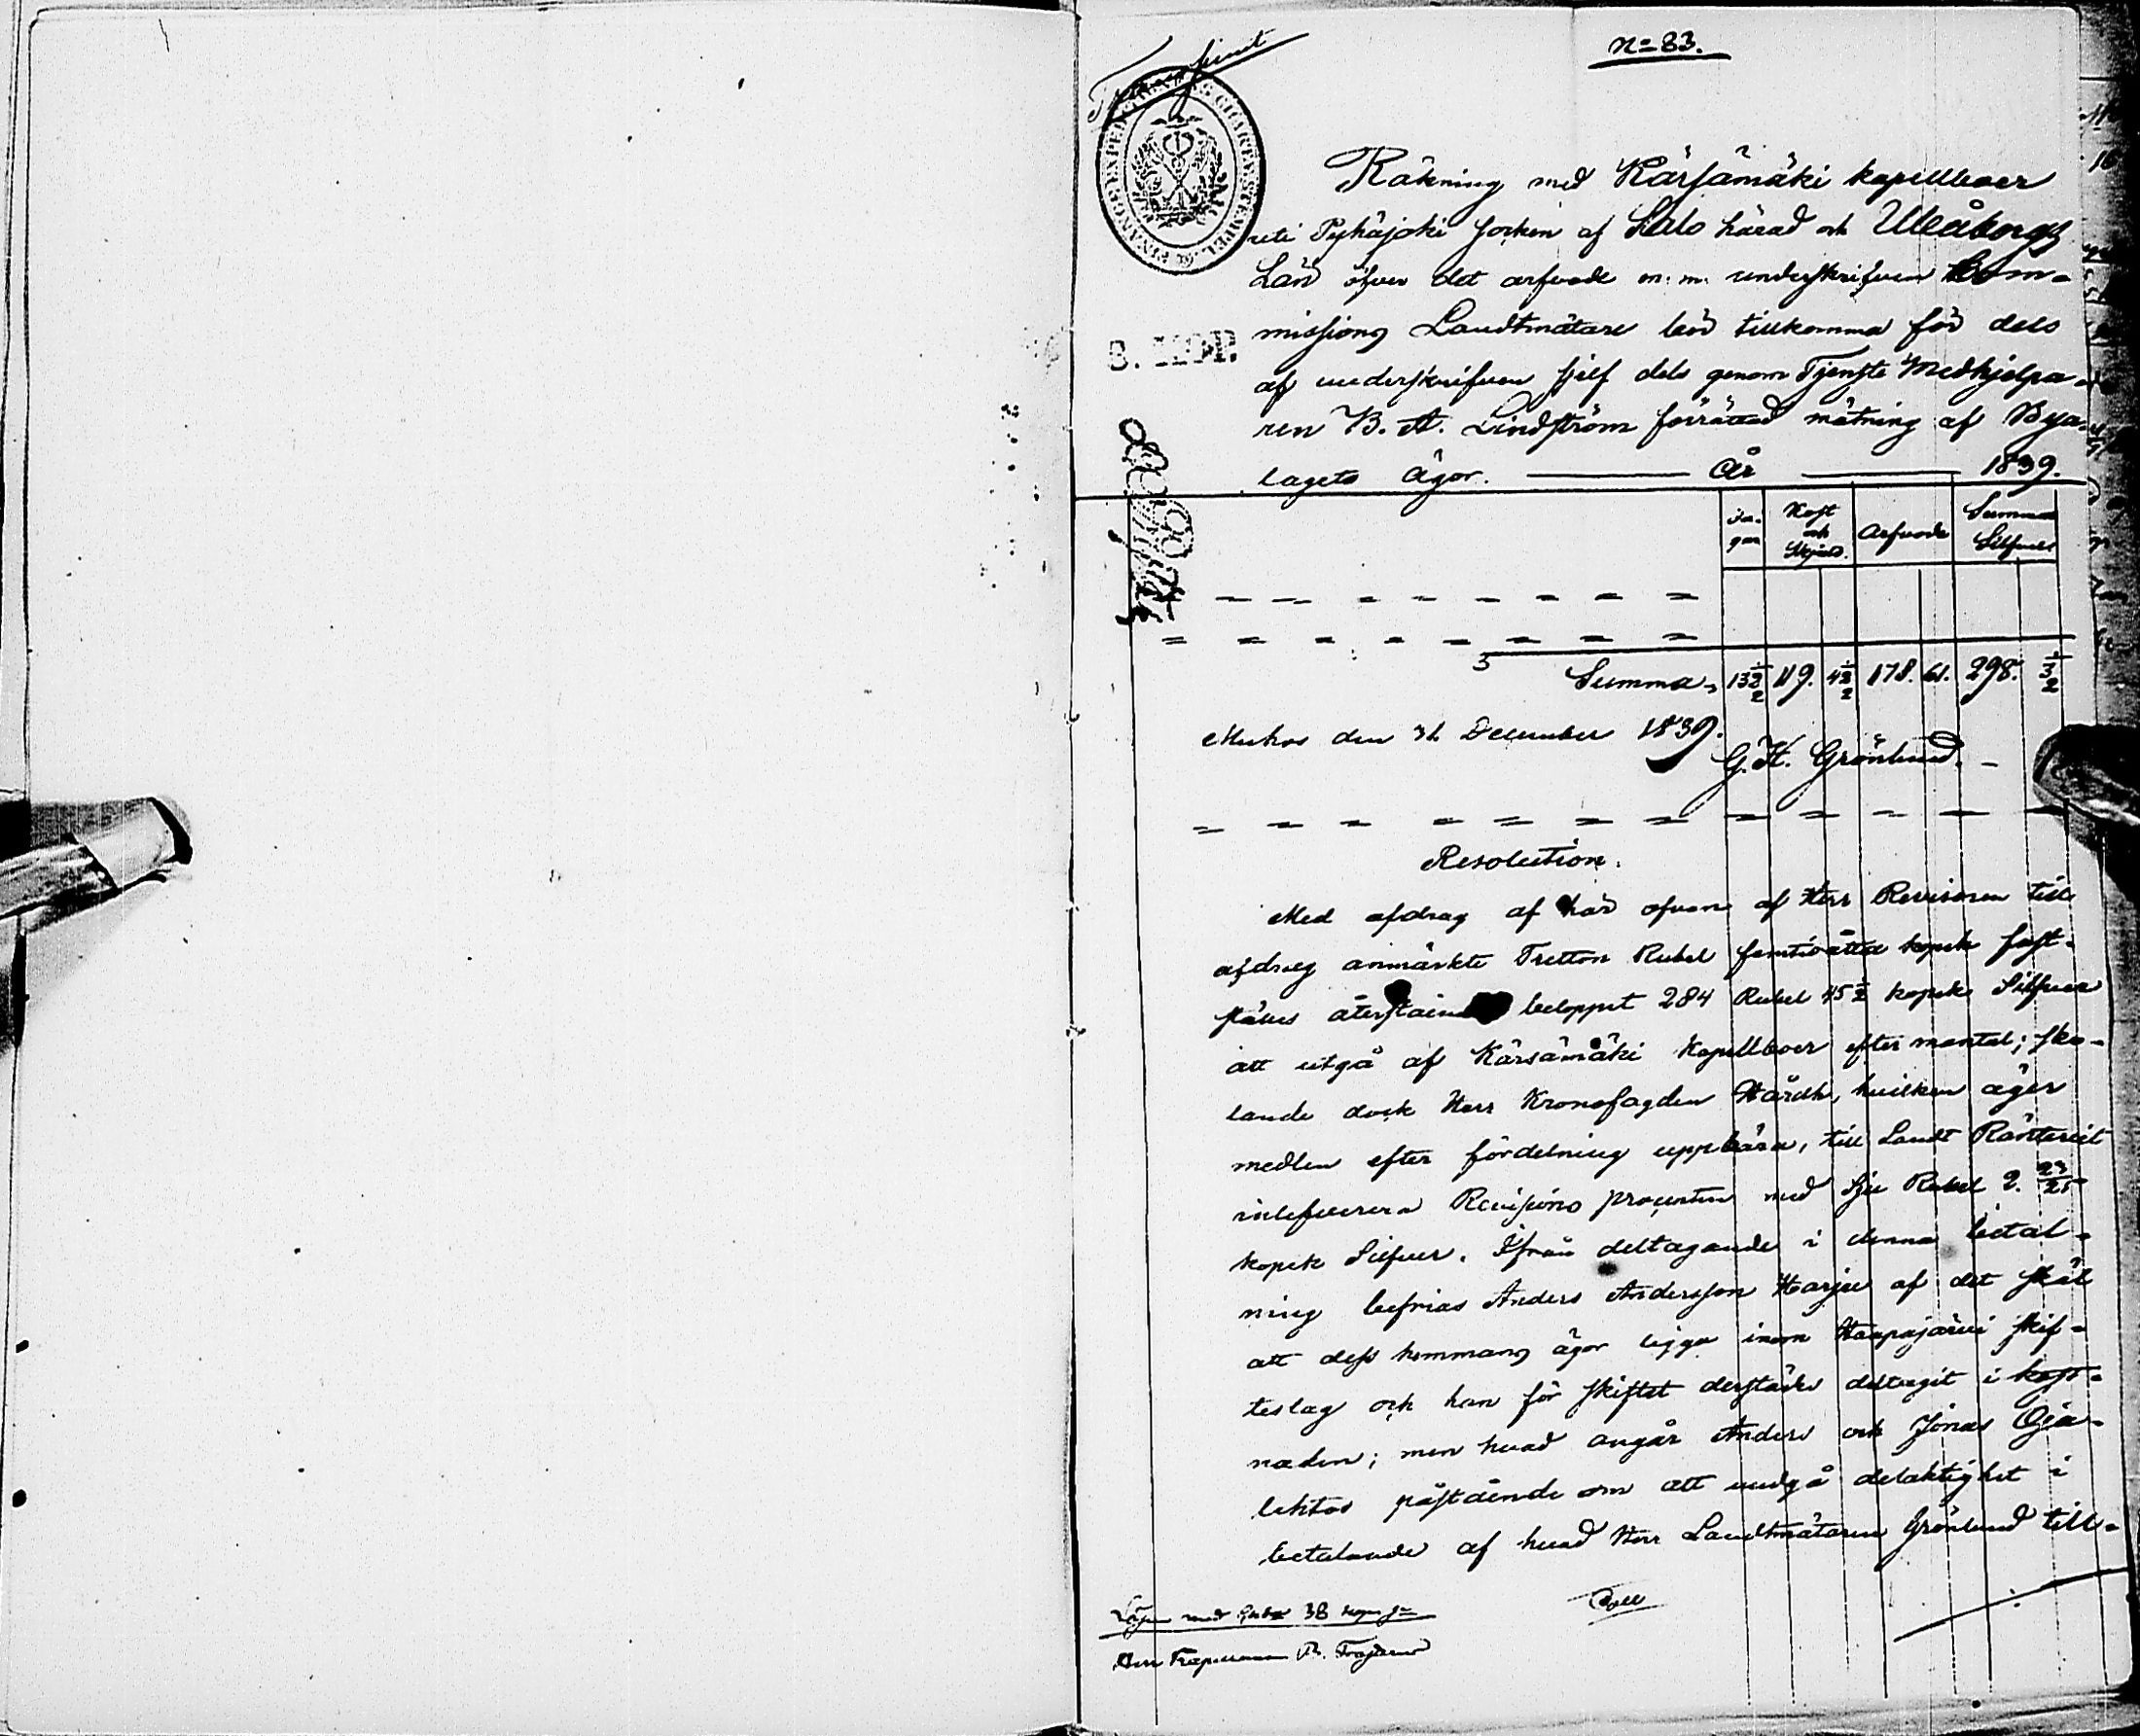 No 83.
Transsumt
FINANCEEXPEDITIONENS CHARTÆSTEMPEL.
Räkning med Kärsämäki kapellboer
uti Pyhäjoki socken af Salo härad och Uleåborgs
Län öfver det arfvode m. m. underskrifven Com-
missions Landtmätare bör tillkomma för dels
af underskrifven sjelf dels genom Tjenste Medhjelpa-
ren B. A. Lindström förrättad mätning af Bya-
lagets ägor. År 1839.
Da-
gar
Kost
och
Skjuts.
Arfvode
Summa
Silfver
Summa 132 1/2 119. 42 1/2 178. 61. 298. 3 1/2
Muhos den 31 December 1839.
G. H. Grönlund.
Resolution.
Med afdrag af här ofvan af Herr Revisoren till
afdrag anmärkte Tretton Rubel femtioåtta kopek fast-
ställes återstående beloppet 284 Rubel 45 1/2 kopek Silfver
att utgå af Kärsämäki Kapellboer efter mantal; sko-
lande dock Herr Kronofogden Hårdh, hvilken äger
medlen efter fördelning uppbära, till Landt Ränteriet
inleverera Revisions procenten med sju Rubel 2. 23/25
kopek Silfver. Ifrån deltagande i denna betal-
ning befrias Anders Andersson Harju af det skäl
att dess hemmans ägor ligga inom Haapajärvi skif-
teslag och han för skiftet derstädes deltagit i kost-
naden; men hvad angår Anders och Jonas Oja-
lehtos påstående om att undgå delaktighet i
betalande af hvad Herr Landtmätaren Grönlund till-
Coll
Lösen med 38 kop. Sr